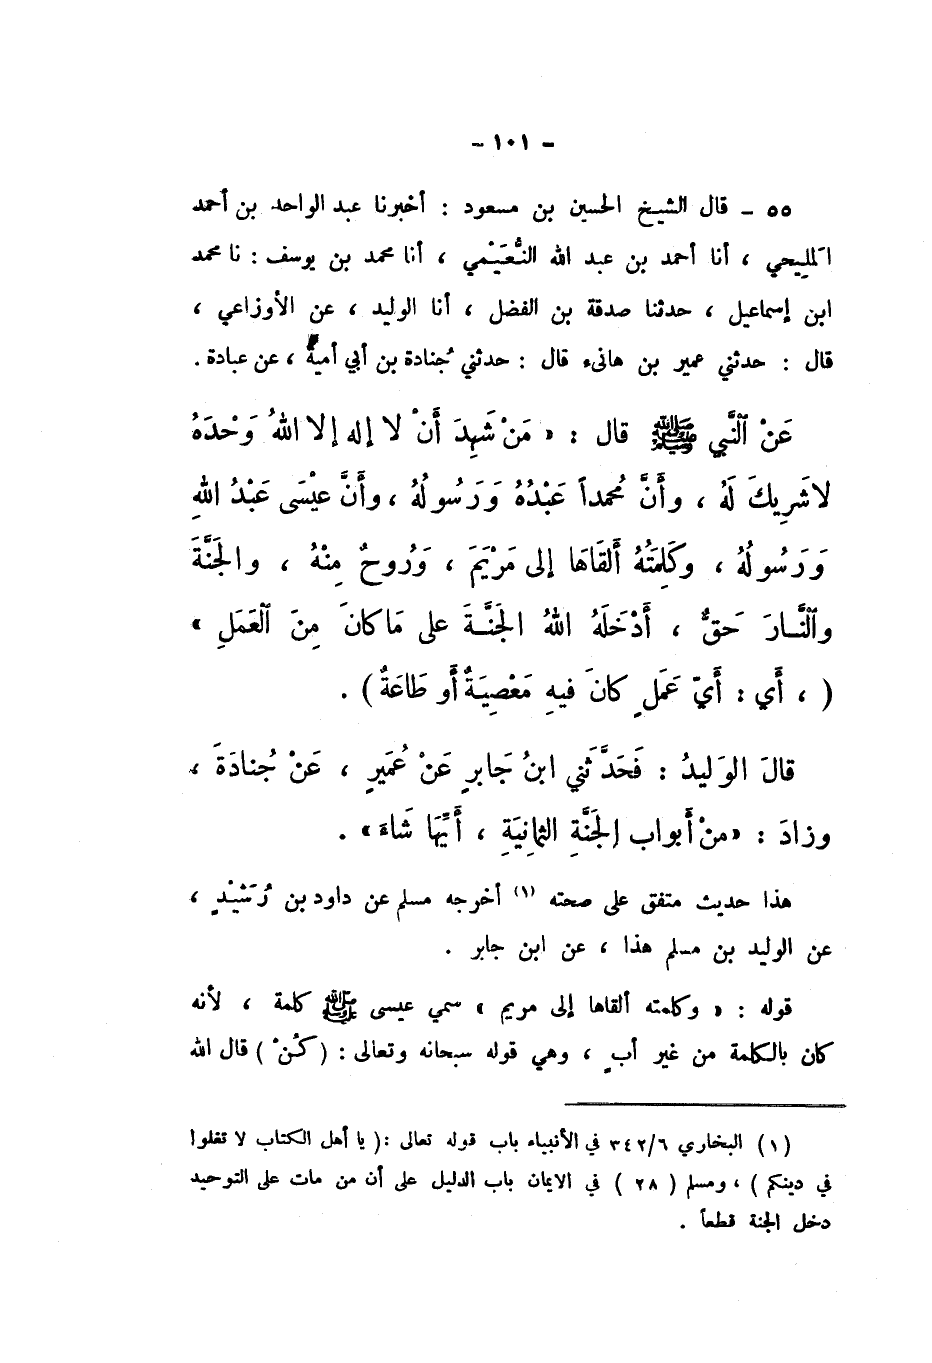 - ١٠١ -
٥٥ - قال الشيخ الحسين بن مسعود : أخبرنا عبد الواحد بن أحمد
المليحي ، أنا أحمد بن عبد الله النُّعَيْمي ، أنا محمد بن يوسف : نا محمد
ابن إسماعيل ، حدثنا صدقة بن الفضل ، أنا الوليد ، عن الأوزاعي ،
قال : حدثني عمير بن هانىء قال : حدثني جُنادة بن أبي أمية ، عن عبادة .
عَنْ ٱلنَّبي ﷺ قال : « مَنْ شَهِدَ أَنْ لا إله إلا اللهُ وَحْدَهُ
لاشَرِيكَ لَهُ ، وأَنَّ مُحمداً عَبْدُهُ وَرَسُولُهُ ، وأَنَّ عيْسَى عَبْدُ اللهِ
وَرَسُولُهُ ، وكَلِمَتُهُ أَلقَاهَا إلى مَرْيَمَ ، وَرُوحٌ مِنْهُ ، والجَنَّةَ
وٱلنَّـارَ حَقٌّ ، أَدْخَلَهُ اللهُ الجَنَّـةَ على مَا كانَ مِنَ ٱلْعَمَلِ »
( ، أَي : أَيّ عَمَلٍ كانَ فيهِ مَعْصِيَةٌ أَو طَاعَةٌ ) .
قالَ الوَليدُ : فَحَدَّثَني ابنُ جَابرٍ عَنْ عُمَيرٍ ، عَنْ جُنادَةَ ،
وزادَ : «منْ أَبواب الجَنَّةِ الثمانِيَةِ ، أَيِّهَا شَاءَ» .
هذا حديث متفق على صحته (١) أخرجه مسلم عن داود بن رُشَيْدٍ ،
عن الوليد بن مسلم هذا ، عن ابن جابر .
قوله : « وكلمته ألقاها إلى مريم » سمي عيسى ﷺ كلمة ، لأنه
كان بالكلمة من غير أبٍ ، وهي قوله سبحانه وتعالى : ( كُنْ ) قال الله
(١) البخاري ٣٤٢/٦ في الأنبياء باب قوله تعالى : ( يا أهل الكتاب لا تغلوا
في دينكم ) ، ومسلم ( ٢٨ ) في الايمان باب الدليل على أن من مات على التوحيد
دخل الجنة قطعاً .